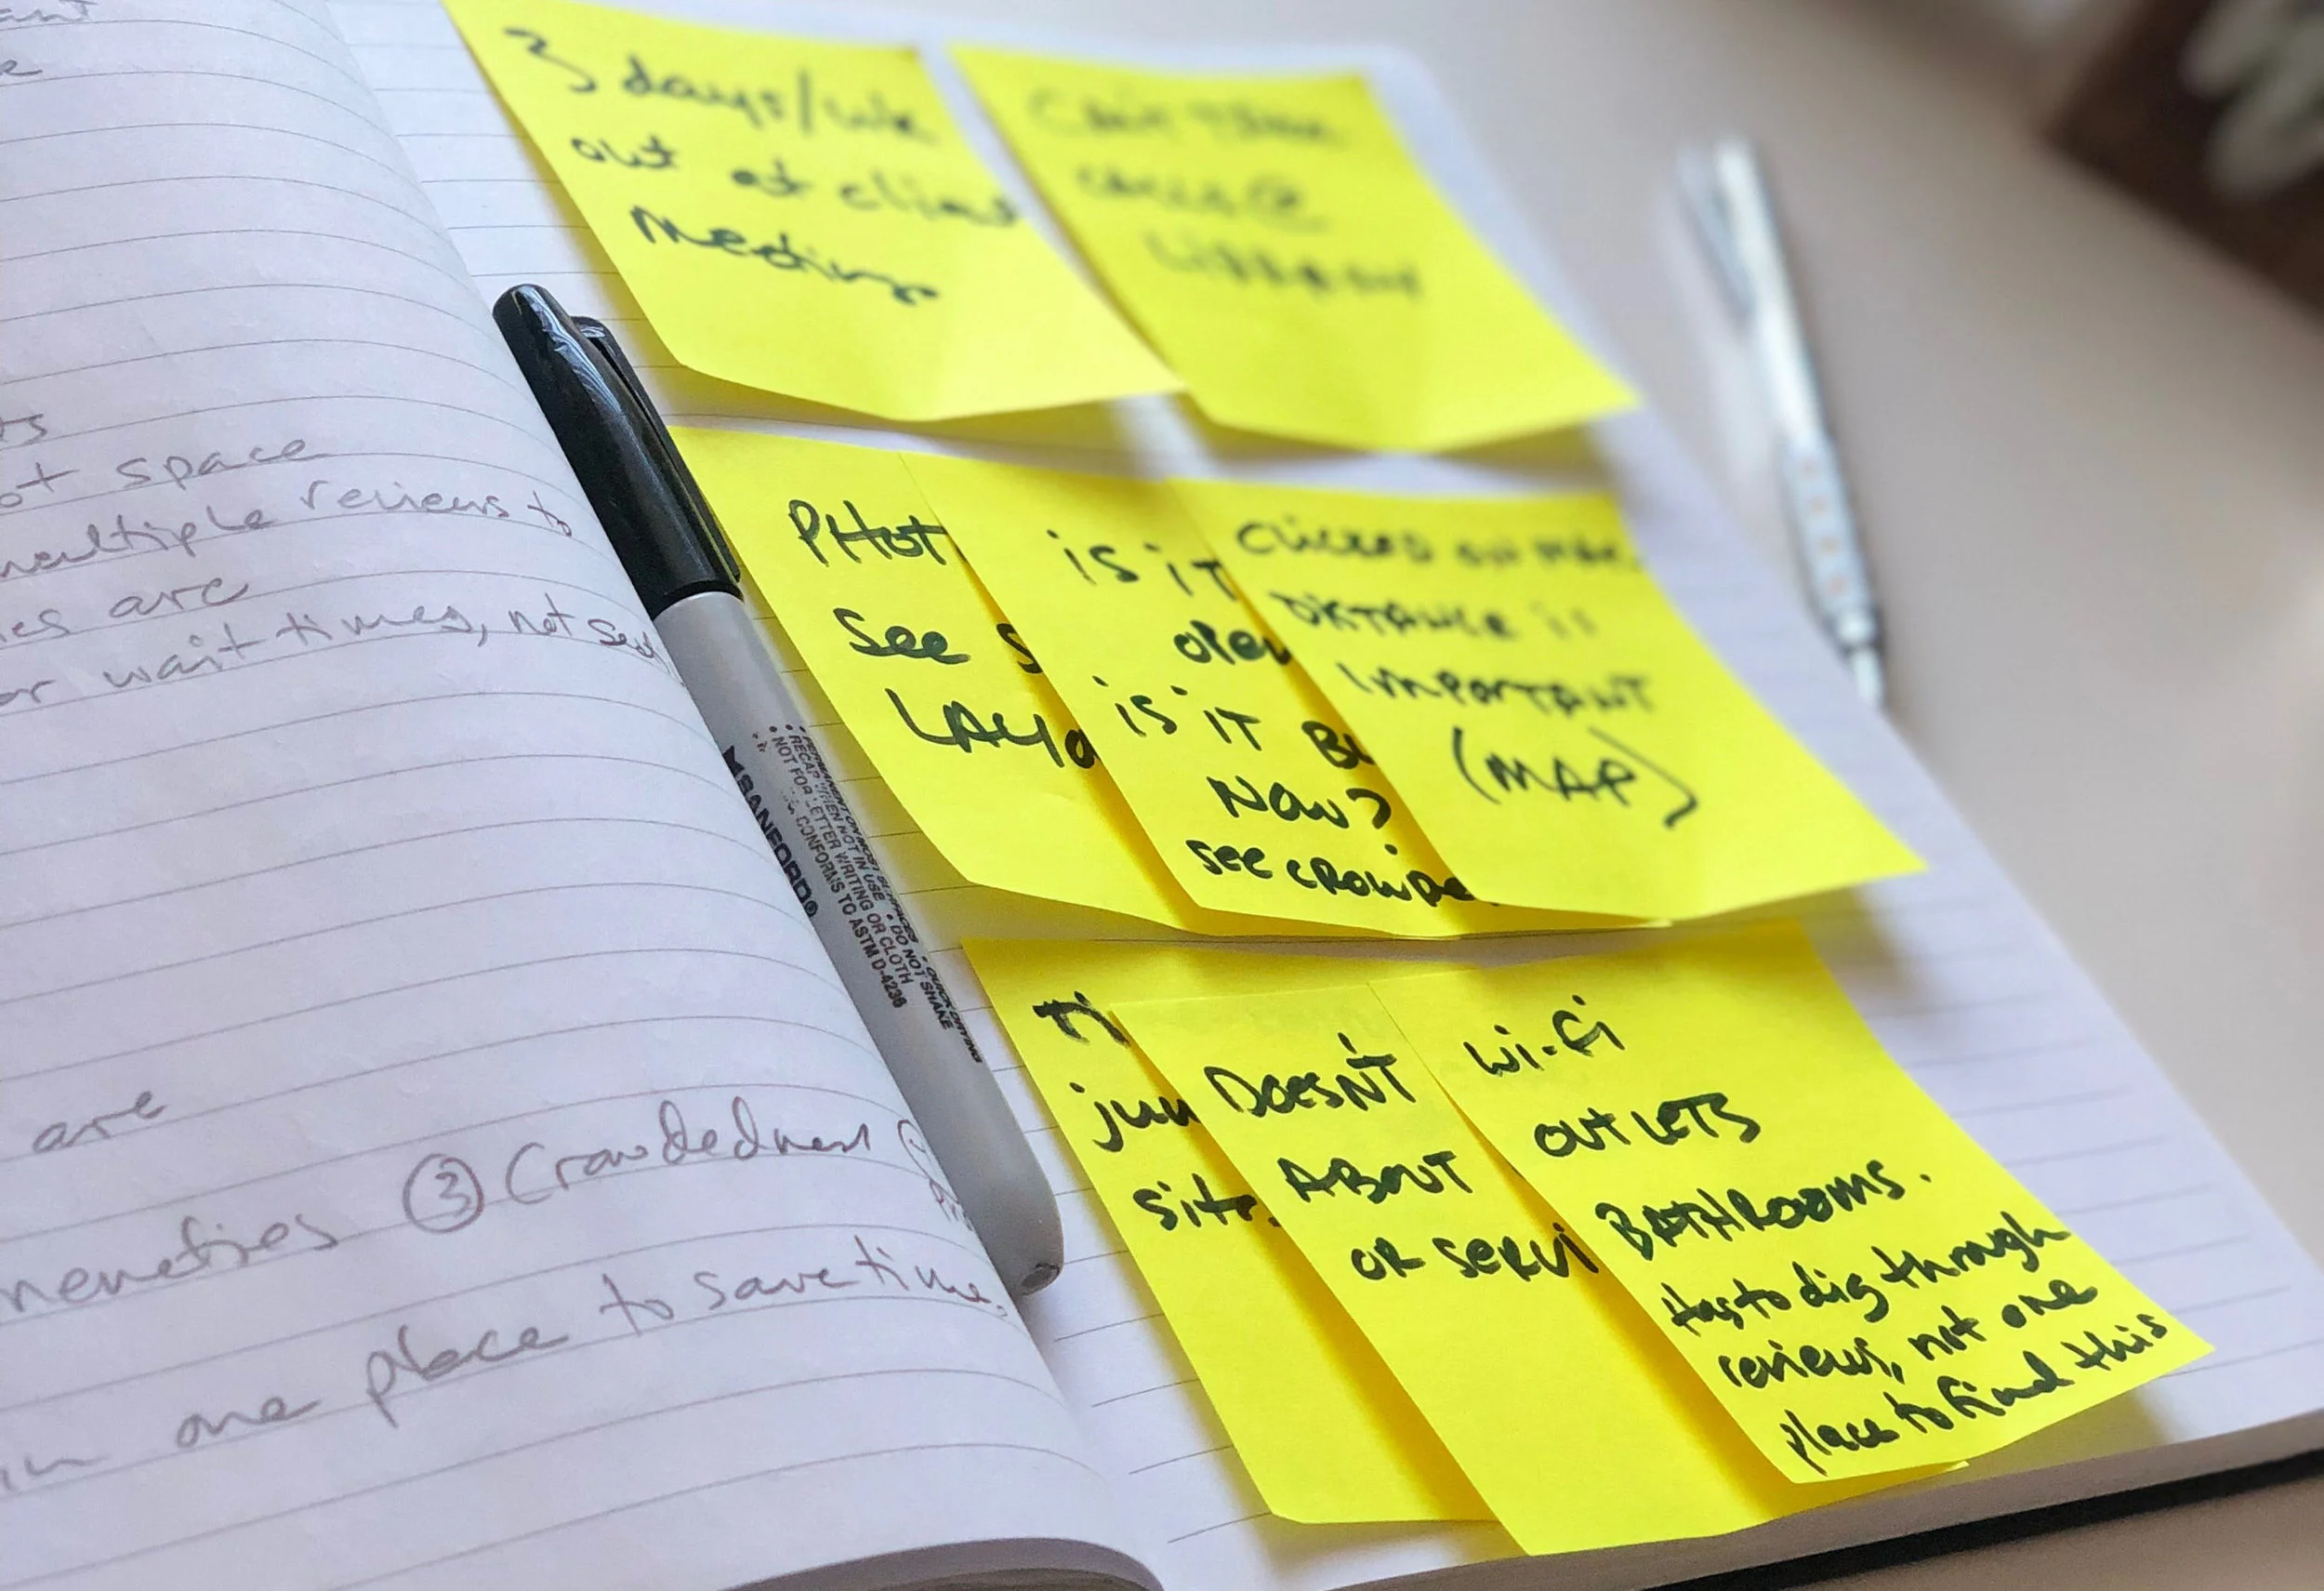 ot space
multiple reviews to
are
or wait times, not
are
③ Crowdedness
in one place to save time.
3 days/wk
out at client
meetings
@
Library
PHOT
see s
LAYO
is it
open
is it BU
NOW?
see crowde
clicked on
DISTANCE is
IMPORTANT
(MAP)
jum
site
DOESN'T
ABOUT
OR SERVI
Wi-Fi
OUTLETS
BATHROOMS.
Has to dig through
reviews, not one
place to find this
SANFORD®
• PERMANENT ON MOST SURFACES • QUICK DRYING
RECAP WHEN NOT IN USE • DO NOT SHAKE
• NOT FOR LETTER WRITING OR CLOTH
CONFORMS TO ASTM D-4236